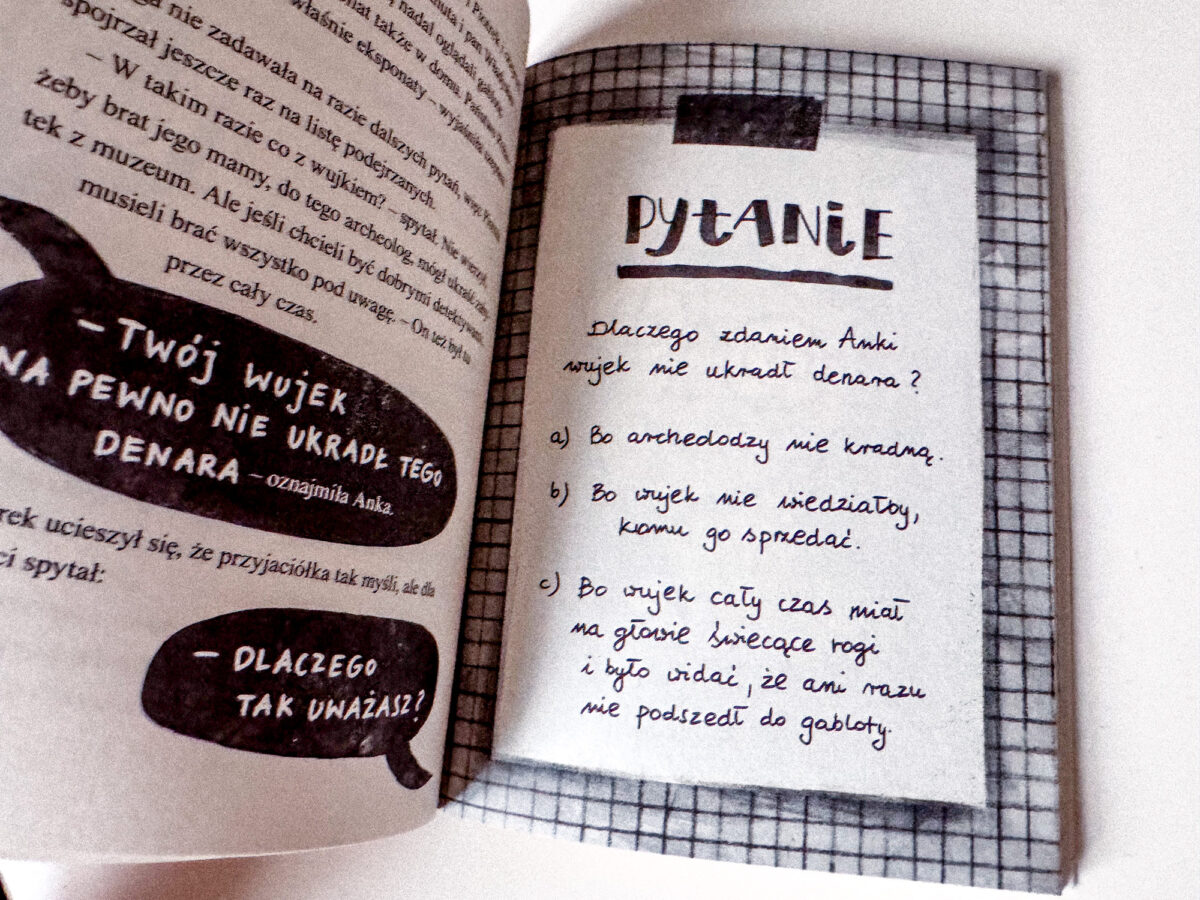 nadal oglądali gabloty
właśnie eksponaty – wyjaśniła
nie zadawała na razie dalszych pytań, więc
spojrzał jeszcze raz na listę podejrzanych.
– W takim razie co z wujkiem? – spytał. Nie wierzył,
żeby brat jego mamy, do tego archeolog, mógł ukraść
tek z muzeum. Ale jeśli chcieli być dobrymi detektywami,
musieli brać wszystko pod uwagę. – On też był tu
przez cały czas.
– TWÓJ WUJEK
NA PEWNO NIE UKRADŁ TEGO
DENARA – oznajmiła Anka.
rek ucieszył się, że przyjaciółka tak myśli, ale dla
ci spytał:
– DLACZEGO
TAK UWAŻASZ?
PYTANIE
Dlaczego zdaniem Anki
wujek nie ukradł denara?
a) Bo archeolodzy nie kradną.
b) Bo wujek nie wiedziałby,
komu go sprzedać.
c) Bo wujek cały czas miał
na głowie świecące rogi
i było widać, że ani razu
nie podszedł do gabloty.